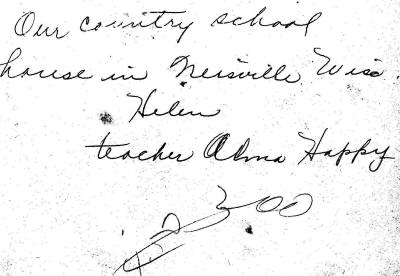 Our country school
house in Neisville Wisc.
Helen
teacher Alma Happy
300